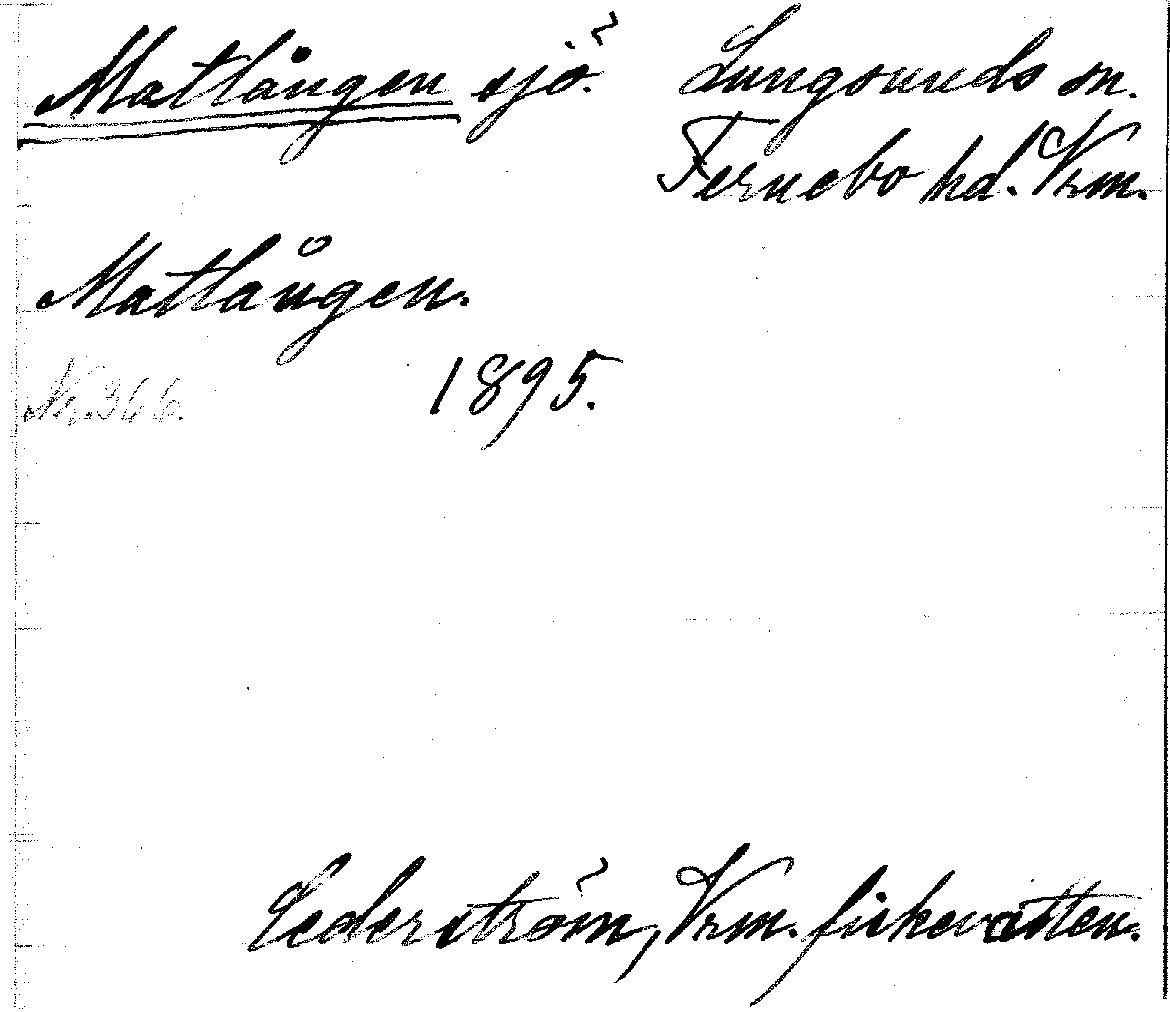 Matlången sjö. Lungsunds sn.
Fernebo hd. Vrm.
Matlången.
Nr. 366. 1895.
Cederström, Vrm. fiskevatten.